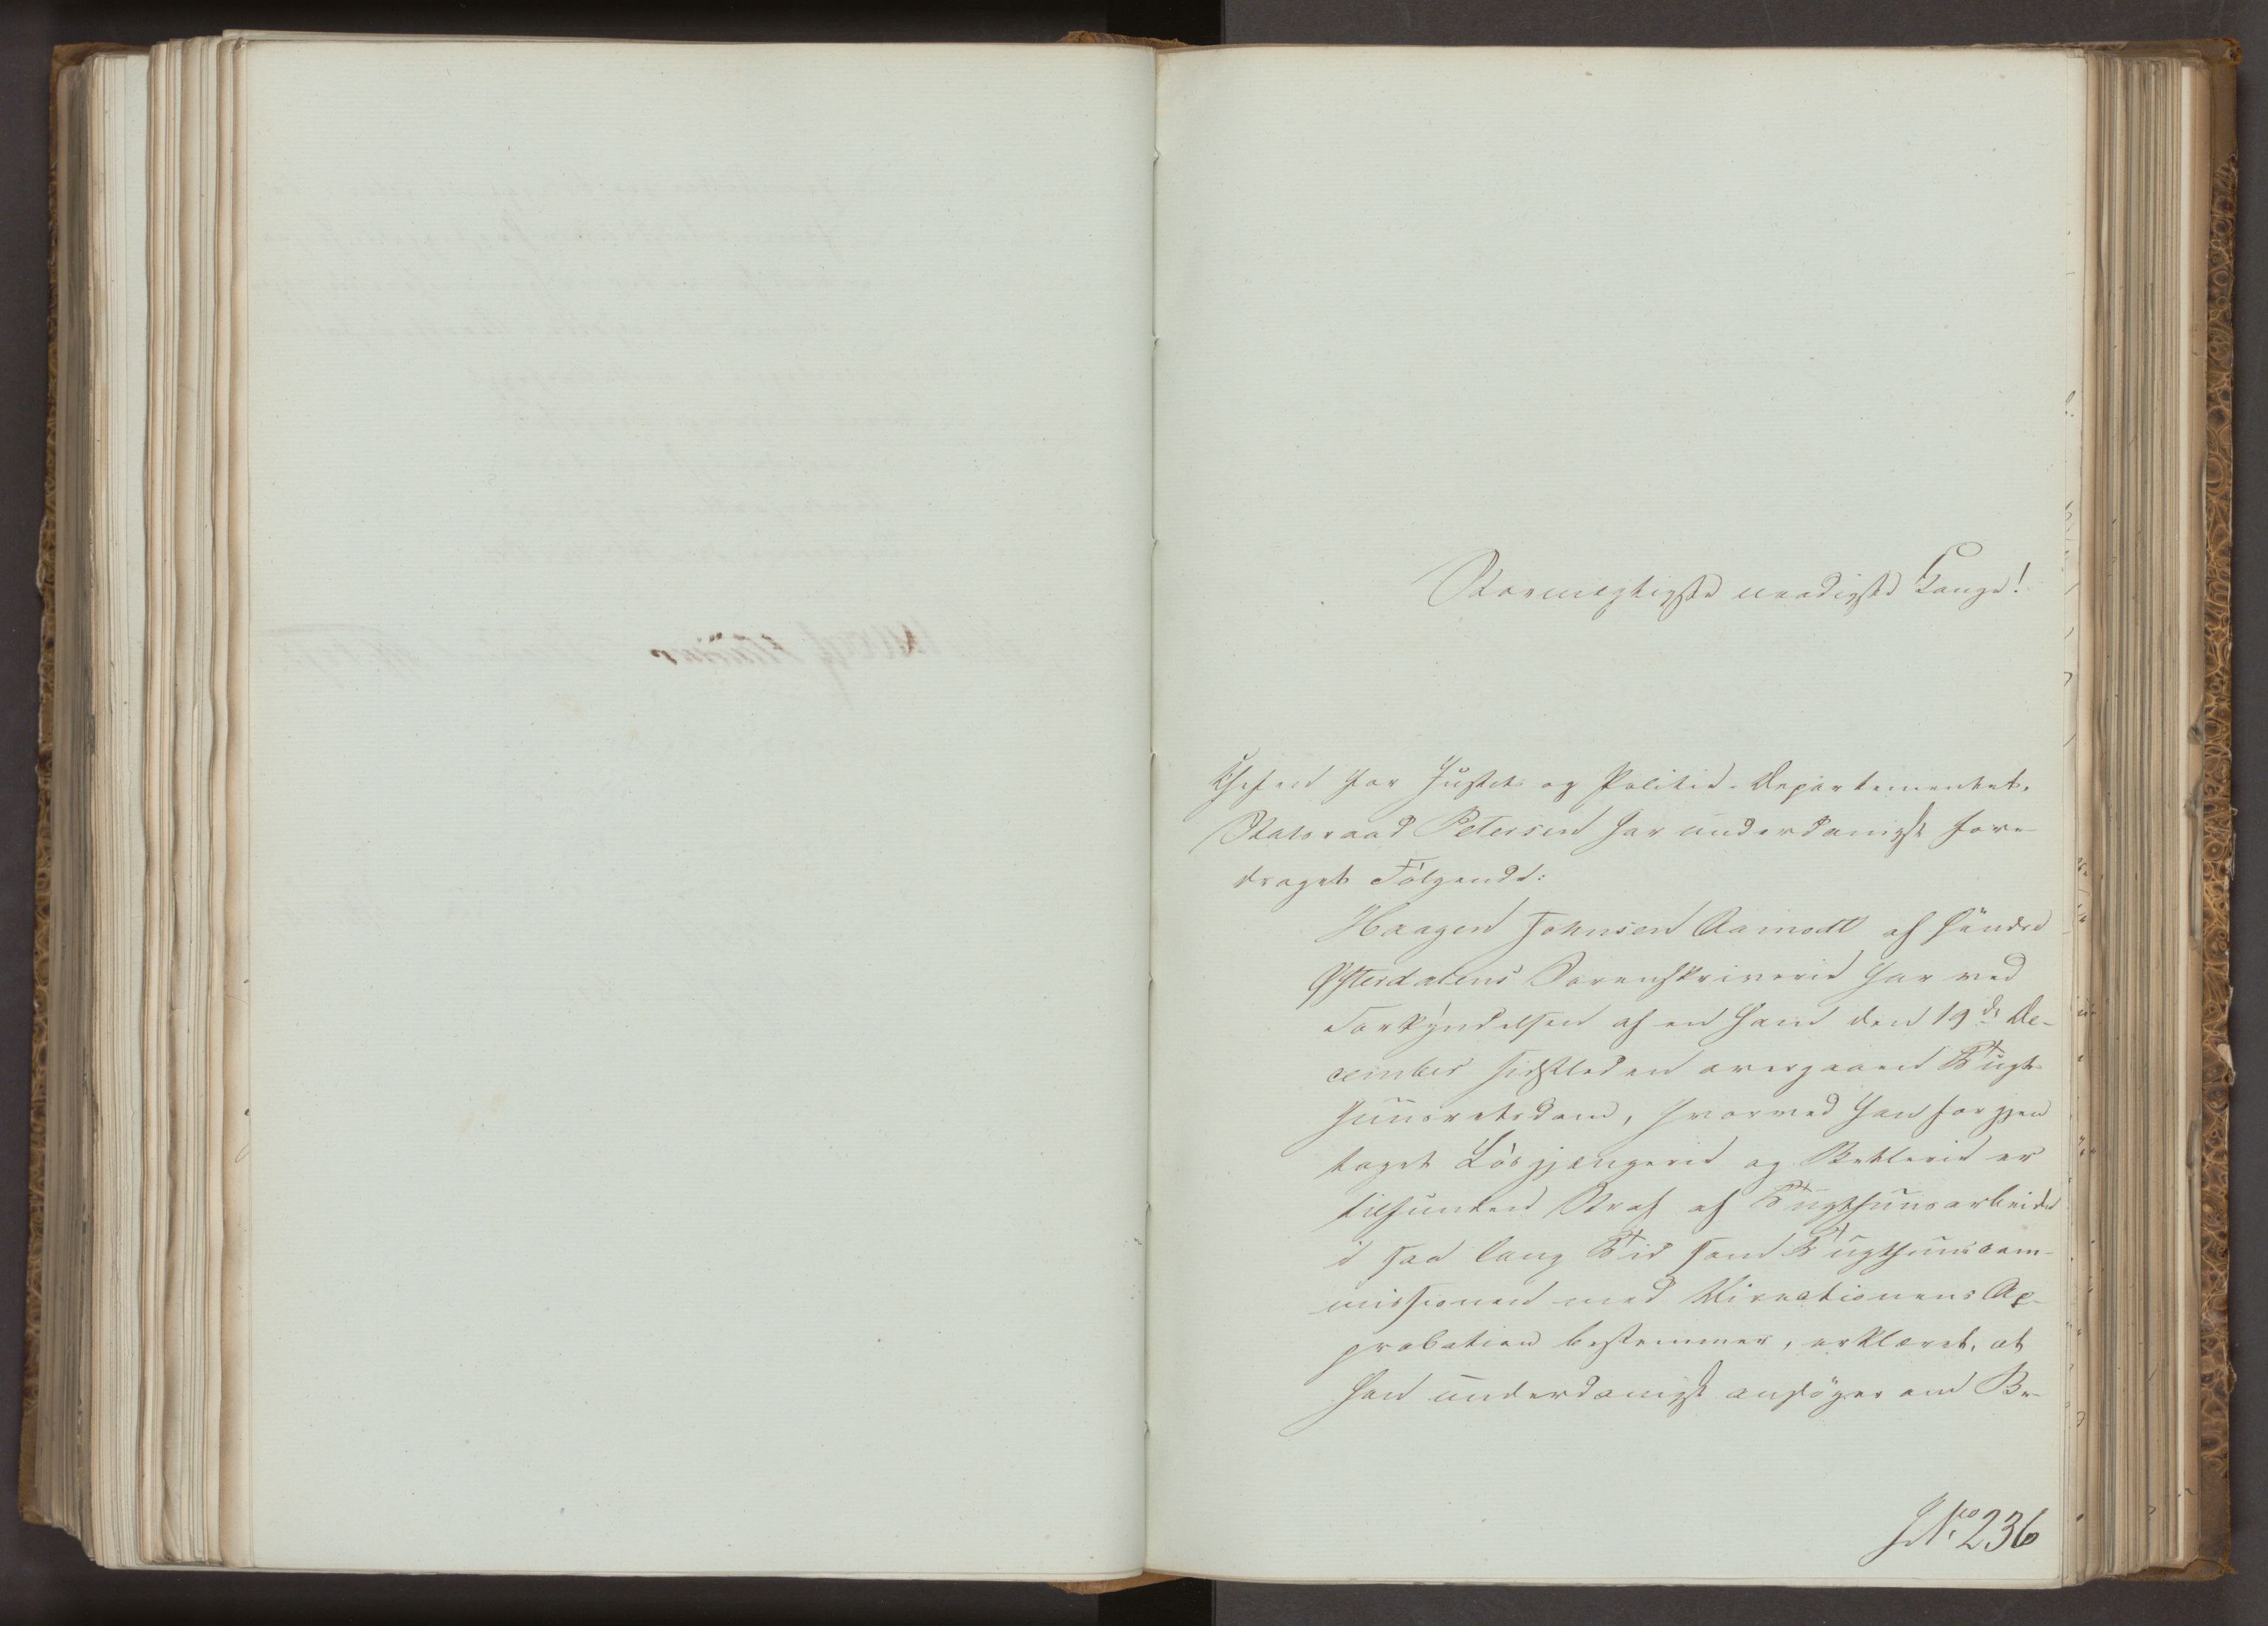 Stormægtigste naadigste Konge!
Chefen for Justits og Politie-Departementet,
Statsraad Petersen har underdanigst fore-
draget Følgende:
Haagen Johnsen Aamodt af Søndre
Østerdalens Sorenskriverie har ved
Forkyndelsen af en ham den 19de De-
cember sidstleden overgaaen Tugt-
huusretsdom, hvorved han for gjen
taget Løsgjængerie og Betlerie er
tilfunden Straf af Tugthuusarbeide
i saa lang Tid som Tugthuuscom-
missionen med Directionens Ap-
probation bestemmer, erklæret, at
han underdanigst ansøger om Be-
JNo 236